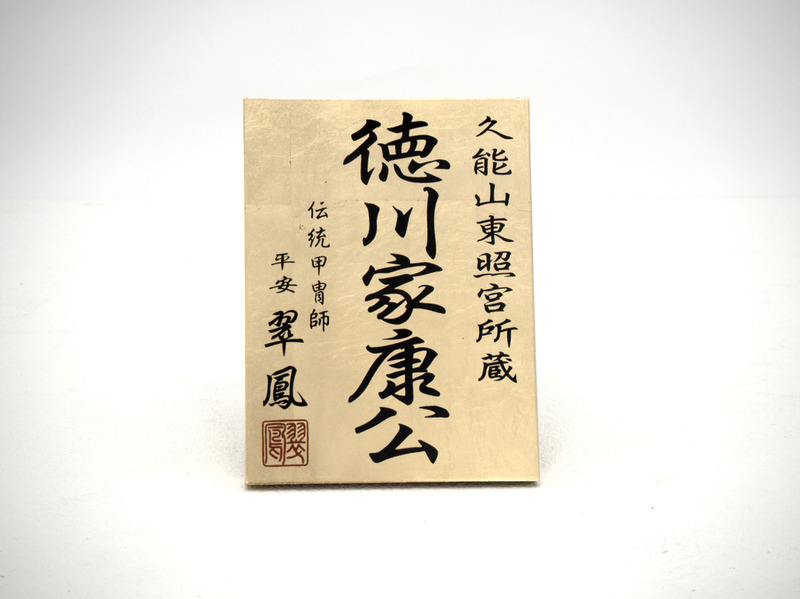 久能山東照宮所蔵
徳川家康公
伝統甲冑師
平安 翠鳳
翠鳳